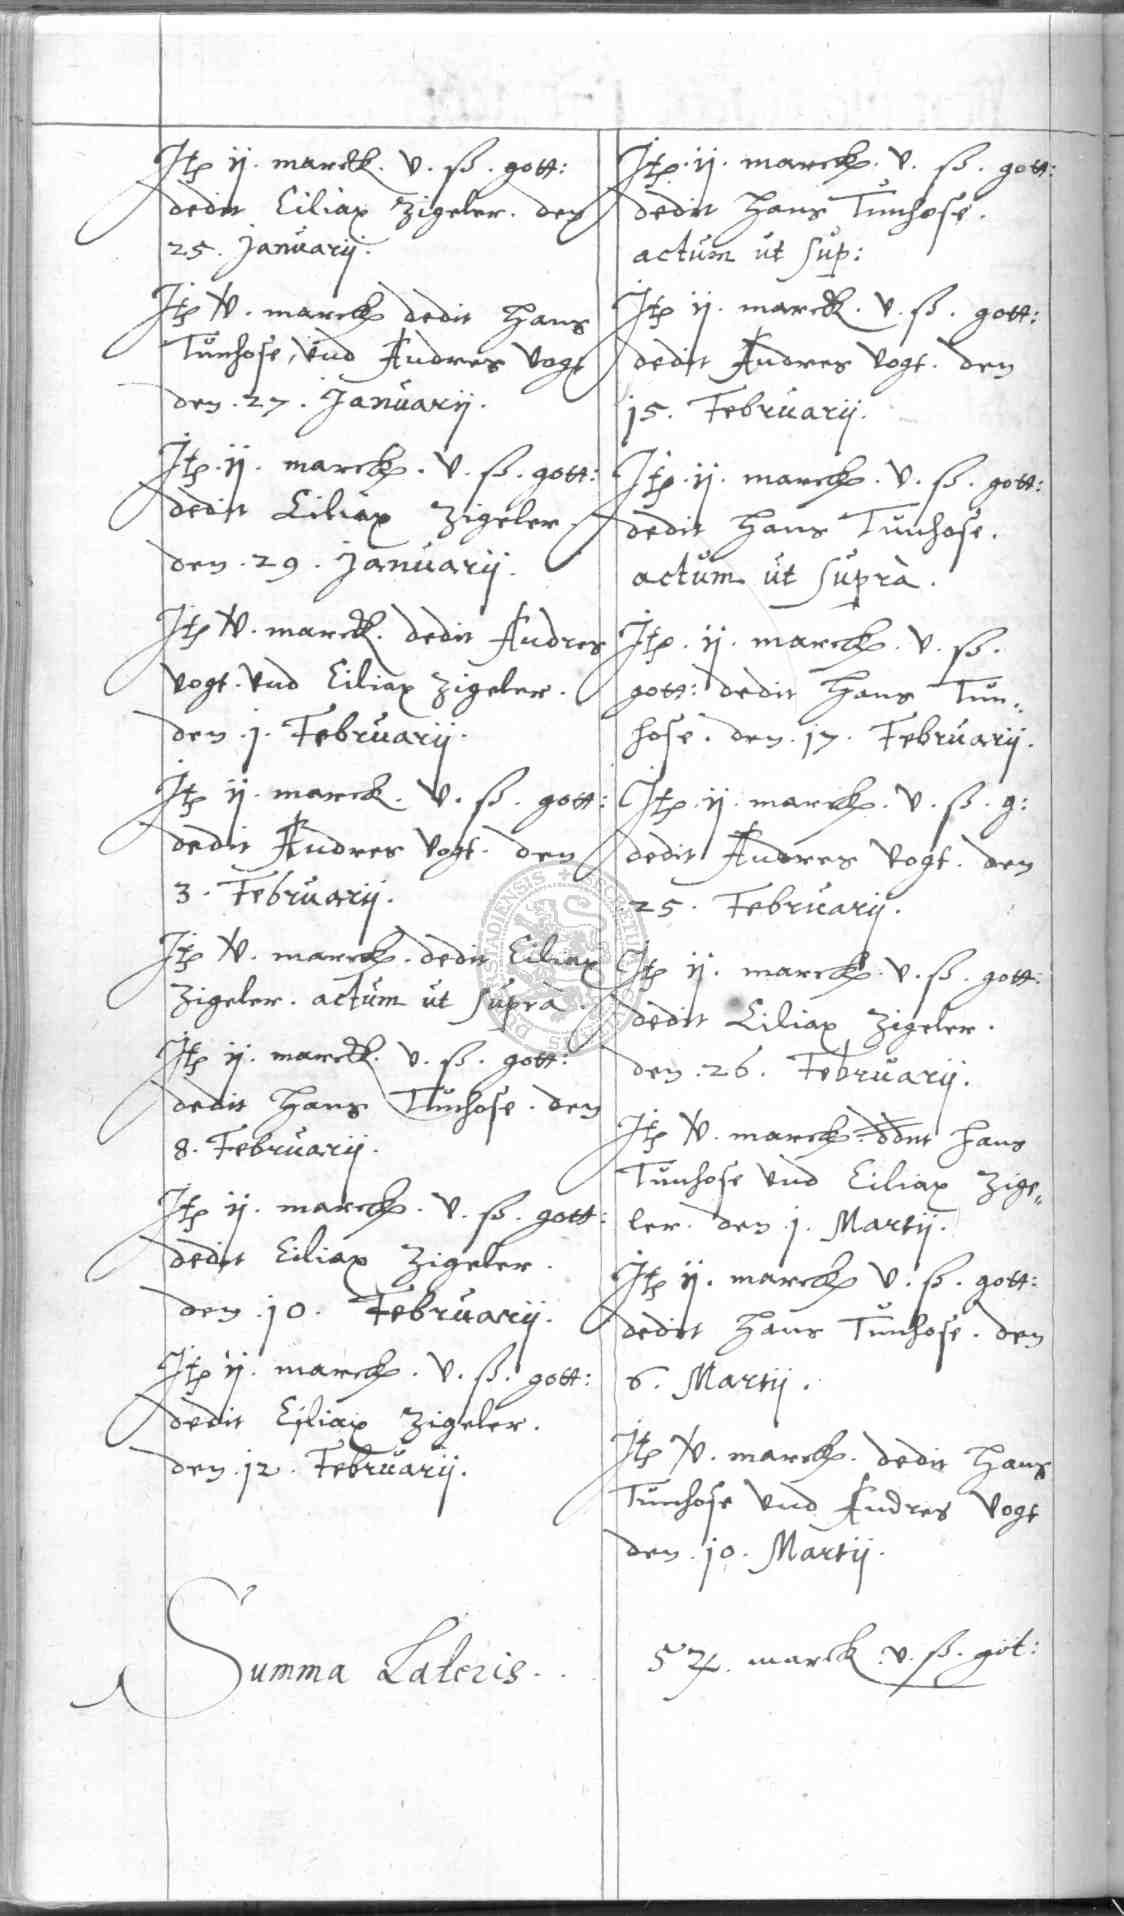 Jtem ij. marck. v. ß. gott:
dedit Ciliax Zigeler. den
25. Januarij.
Jtem v. marck dedit Hans
Tunhose, vnd Andres Vogt
den. 27. Januarij.
Jtem. ij. marck. v. ß. gott:
dedit Ciliax Zigeler.
den. 29. Januarij.
Jtem v. marck. dedit Andres
Vogt. vnd Ciliax Zigeler.
den. j. Februarij.
Jtem ij. marck. v. ß. gott:
dedit Andres Vogt. den
3. Februarij.
Jtem v. marck. dedit Ciliax
Zigeler. actum ut supra.
Jtem ij. marck. v. ß. gott:
dedit Hans Tunhose. den
8. Februarij.
Jtem ij. marck. v. ß. gott:
dedit Ciliax Zigeler.
den. jo. Februarij.
Jtem ij. marck. v. ß. gott:
dedit Ciliax Zigeler.
den. j2. Februarij.
Summa Lateris. . .
Jtem. ij. marck. v. ß. gott:
dedit Hans Tunhose.
actum ut sup:
Jtem ij. marck. v. ß. gott:
dedit Andres Vogt. den
j5. Februarij.
Jtem. ij. marck. v. ß. gott:
dedit Hans Tunhose.
actum ut suprà.
Jtem. ij. marck. v. ß.
gott: dedit Hans Tun„
hose. den. j7. Februarij.
Jtem. ij. marck. v. ß. g:
dedit Andres Vogt. den
25. Februarij.
Jtem ij. marck. v. ß. gott:
dedit Ciliax Zigeler.
den. 26. Februarij.
Jtem v. marck. ddnt Hans
Tunhose vnd Ciliax Zige„
ler. den. j. Martij.
Jtem ij. marck v. ß. gott:
dedit Hans Tunhose. den
6. Martij.
Jtem v. marck. dedit Hans
Tunhose vnd Andres Vogt
den. jo. Martij.
54. marck. v. ß. got: